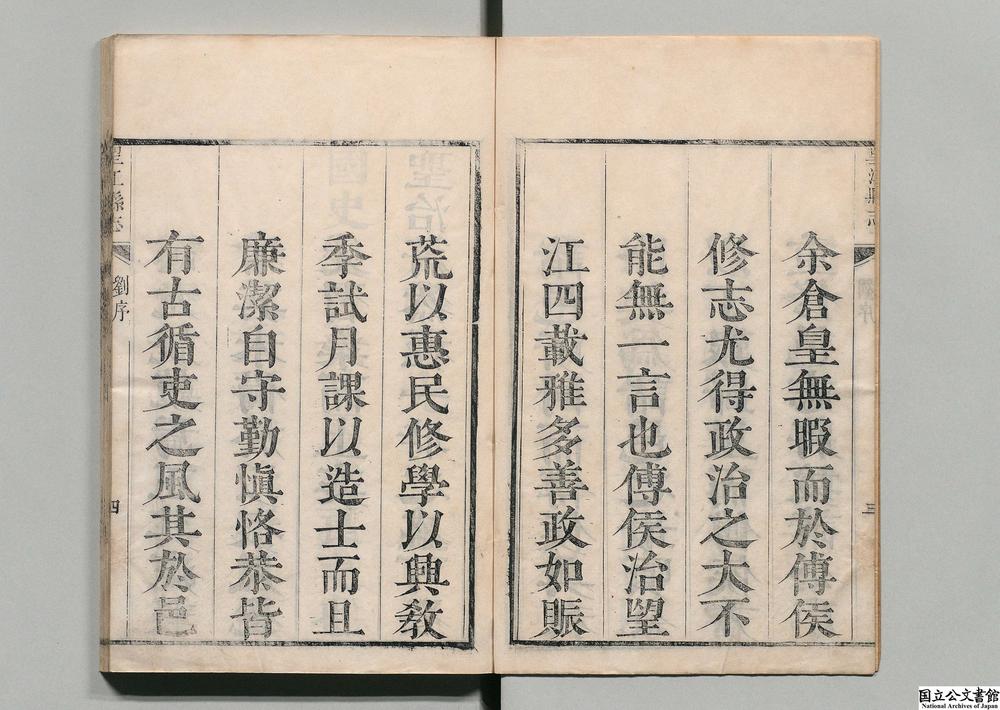 余倉皇無暇而於傅侯
修志尤得政治之大不
能無一言也傅侯治望
江四載雅多善政如賑
荒以惠民修學以興教
季試月課以造士而且
廉潔自守勤愼恪恭皆
有古循吏之風其於邑
望江縣志
劉序
三
望江縣志
劉序
四
国立公文書館
National Archives of Japan